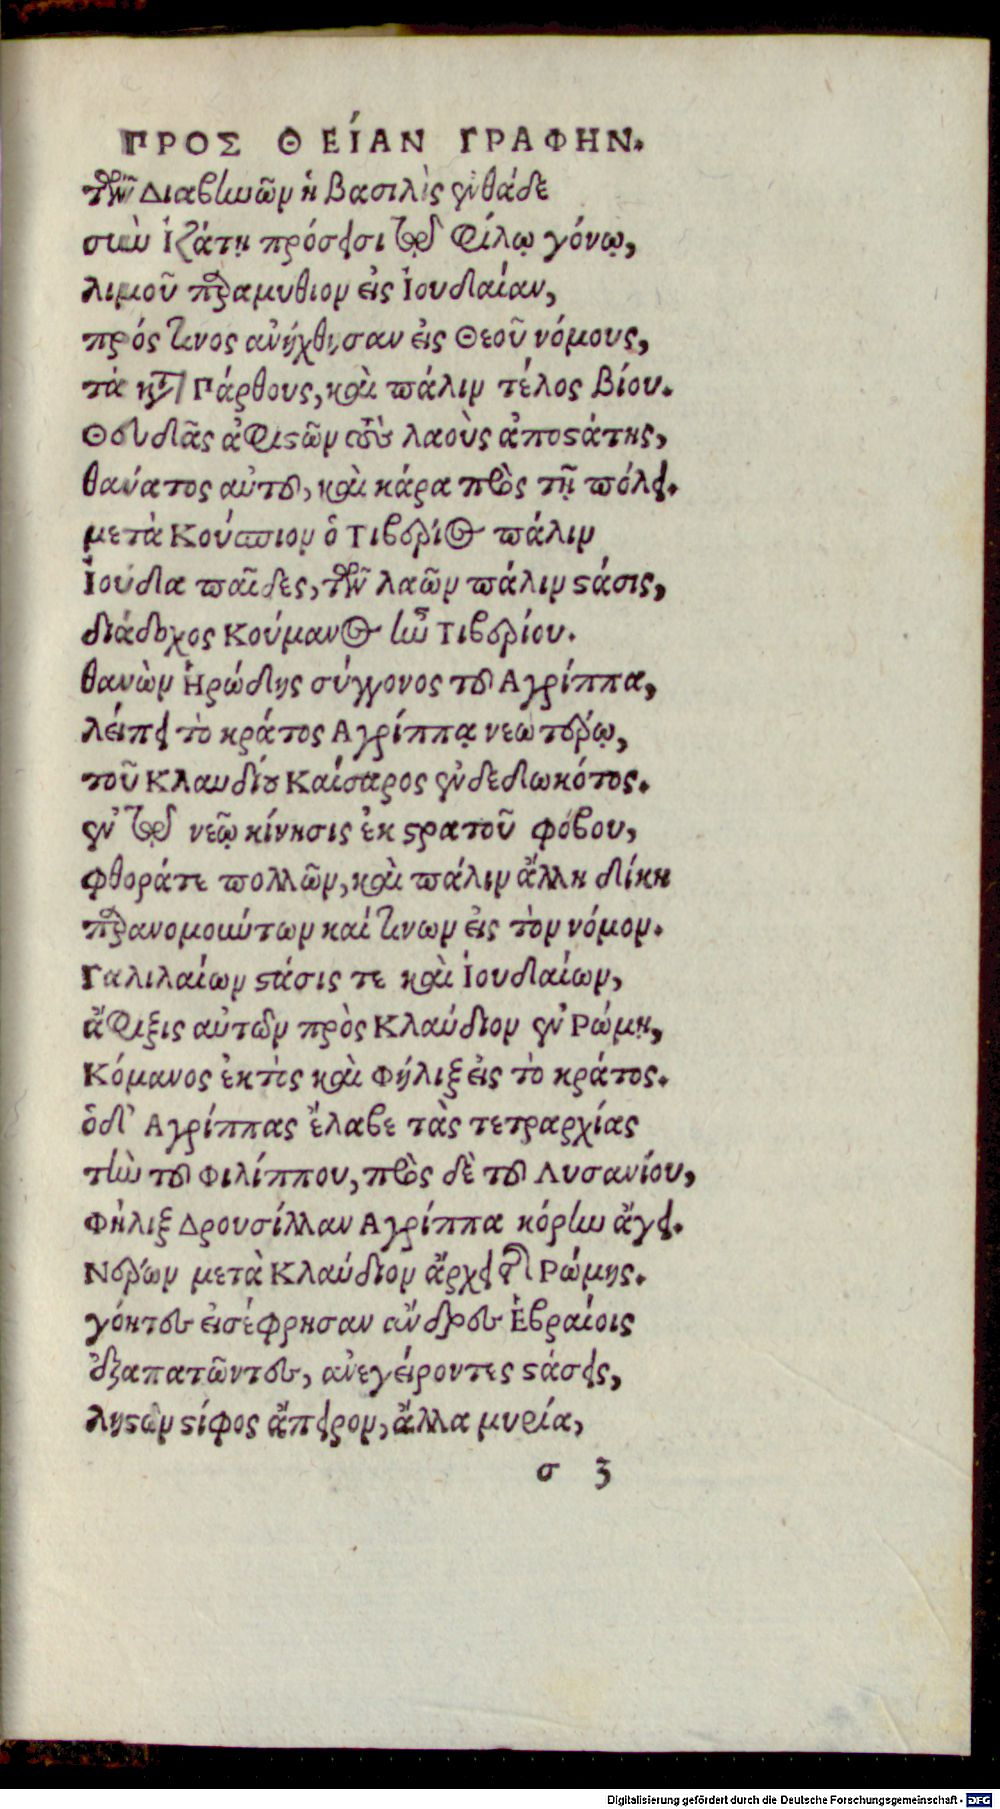 ΠΡΟΣ ΘΕΊΑΝ ΓΡΑΦΗΝ.
τῶν Διαβηνῶν ἡ βασιλὶς ἐνθάδε
σὺν Ἰζάτῃ πρόσεισι τῷ φίλῳ γόνῳ,
λιμοῦ παραμυθιον εἰς Ἰουδαίαν,
πρός τινος ἀνήχθησαν εἰς Θεοῦ νόμους,
τὰ κατὰ Πάρθους, καὶ πάλιν τέλος βίου.
Θευδᾶς ἀφιστῶν τοὺς λαοὺς ἀποστάτης,
θανάτος αὐτοῦ, καὶ κάρα πρὸς τῇ πόλει.
μετὰ Κούσπιον ὁ Τιβέριος πάλιν
Ἰούδα παῖδες, τῶν λαῶν πάλιν στάσις,
διάδοχος Κούμανος ἦν Τιβερίου.
θανὼν Ἡρώδης σύγγονος τοῦ Αγρίππα,
λείπει τὸ κράτος Αγρίππᾳ νεωτέρῳ,
τοῦ Κλαυδίου Καίσαρος ἐνδεδωκότος.
ἐν τῷ νεῷ κίνησις ἐκ στρατοῦ φόβου,
φθοράτε πολλῶν, καὶ πάλιν ἄλλη δίκη
παρανομούντων καί τινων εἰς τὸν νόμον.
Γαλιλαίων στάσις τε καὶ Ἰουδαίων,
ἄφιξις αὐτῶν πρὸς Κλαύδιον ἐν Ρώμῃ,
Κόμανος ἐκτὸς καὶ Φήλιξ εἰς τὸ κράτος.
ὁδ' Αγρίππας ἔλαβε τὰς τετραρχίας
τὴν τοῦ Φιλίππου, πρὸς δὲ τοῦ Λυσανίου,
Φῆλιξ Δρουσίλλαν Αγρίππα κόρην ἄγει.
Νέρων μετὰ Κλαύδιον ἄρχει τῆς Ρώμης.
γόητες εἰσέφρησαν ἄνδρες Ἑβραίοις
ἐξαπατῶντες, ἀνεγείροντες στάσεις,
λῃστῶν στίφος ἄπειρον, ἄλλα μυρία,
σ 3
Digitalisierung gefördert durch die Deutsche Forschungsgemeinschaft - DFG